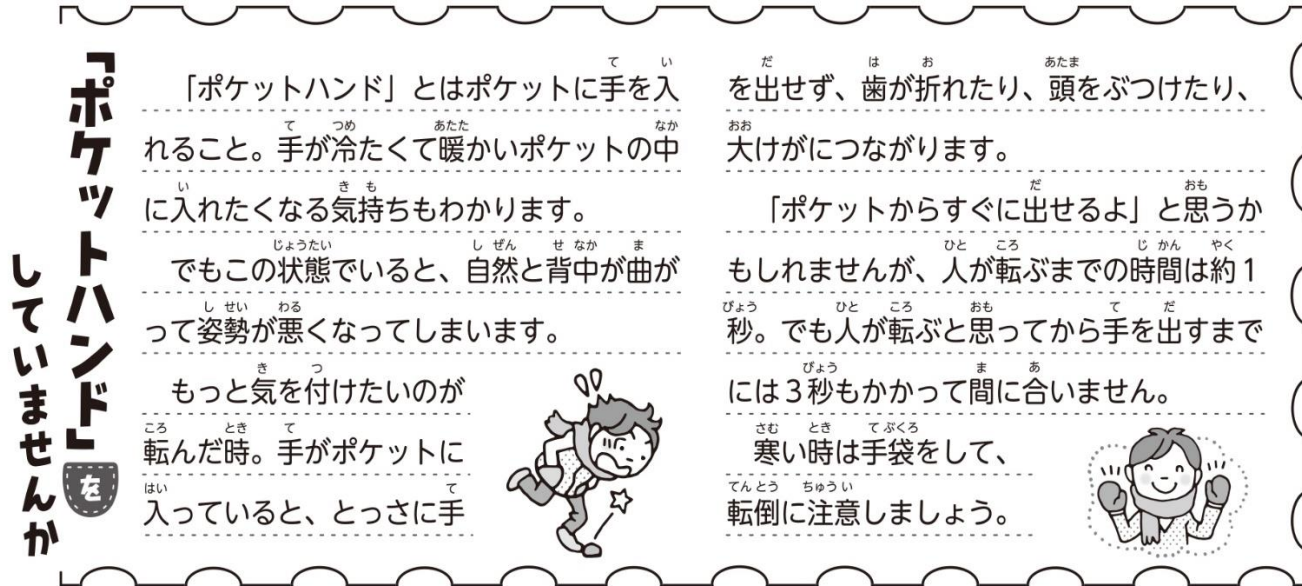 「ポケットハンド」を
していませんか
「ポケットハンド」とはポケットに手を入
れること。手が冷たくて暖かいポケットの中
に入れたくなる気持ちもわかります。
でもこの状態でいると、自然と背中が曲が
って姿勢が悪くなってしまいます。
もっと気を付けたいのが
転んだ時。手がポケットに
入っていると、とっさに手
を出せず、歯が折れたり、頭をぶつけたり、
大けがにつながります。
「ポケットからすぐに出せるよ」と思うか
もしれませんが、人が転ぶまでの時間は約1
秒。でも人が転ぶと思ってから手を出すまで
には3秒もかかって間に合いません。
寒い時は手袋をして、
転倒に注意しましょう。